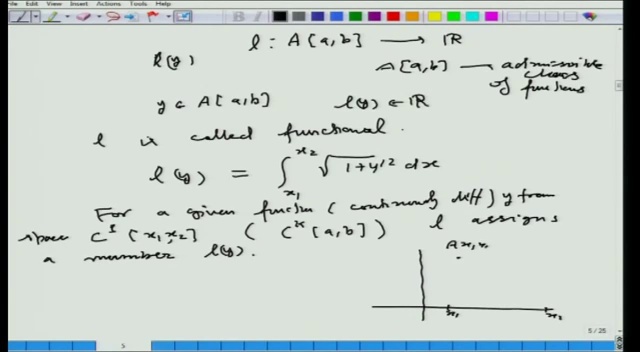 File Edit View Insert Actions Tools Help
l : A[a,b] ⟶ ℝ
l(y) A[a,b] — admissible class of functions
y ∈ A[a,b] l(y) ∈ ℝ
l is called functional.
l(y) = ∫_{x₁}^{x₂} √(1+y'²) dx
For a given function (continuously diff) y from
space C¹[x₁,x₂] ( [a,b] ) l assigns
a number l(y).
A x₁,y₁
x₁ x₂
5 / 25
5